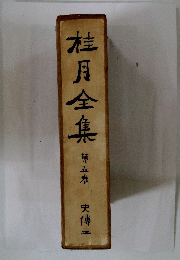 桂月全集
第五卷
史傳二